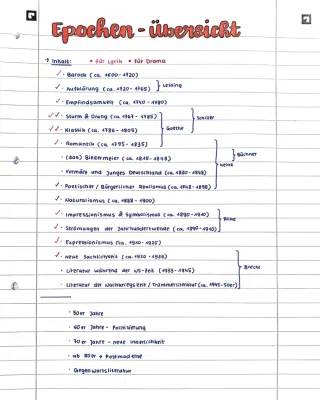 Epochen-übersicht
→ Inhalt: • für Lyrik • für Drama
✓ • Barock (ca. 1600-1720)
✓ • Aufklärung (ca. 1720-1785) } Lessing
• Empfindsamkeit (ca. 1740-1780)
✓✓ • Sturm & Drang (ca. 1767-1785) } Schiller
✓✓ • Klassik (ca. 1786-1805) } Goethe
✓ • Romantik (ca. 1795-1835)
• (das) Biedermeier (ca. 1815-1848) } Büchner
• Vormärz und Junges Deutschland (ca. 1830-1848) } Heine
✓ • Poetischer / Bürgerlicher Realismus (ca. 1848-1898)
✓ • Naturalismus (ca. 1880-1900)
✓ • Impressionismus & Symbolismus (ca. 1890-1910)
✓ • Strömungen der Jahrhundertwende (ca. 1890-1910) } Rilke
✓ • Expressionismus (ca. 1910-1925)
✓ • neue Sachlichkeit (ca. 1920-1933)
• Literatur während der NS-Zeit (1933-1945) } Brecht
• Literatur der Nachkriegszeit / Trümmerliteratur (ca. 1945-50er)
• 50er Jahre
• 60er Jahre - Politisierung
• 70er Jahre - neue Innerlichkeit
• ab 80er → Postmoderne
• Gegenwartsliteratur